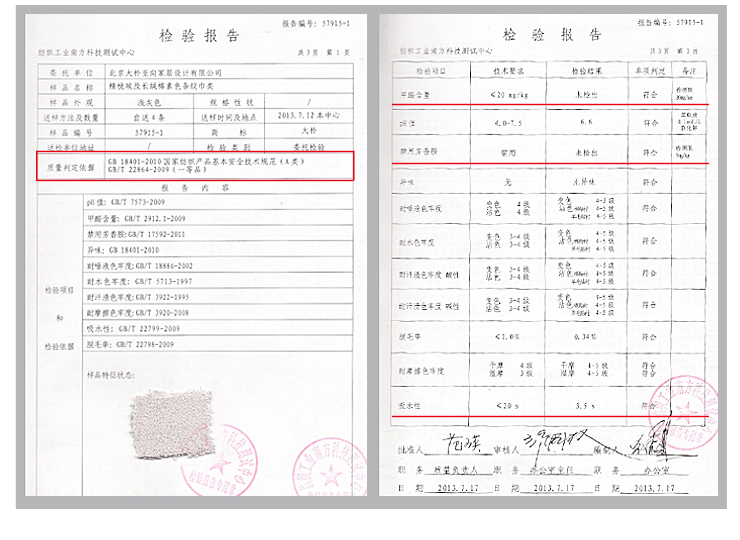 报告编号: 57915-1
检验报告
纺织工业南方科技测试中心 共 3 页 第 1 页
委托单位 北京大朴至向家居设计有限公司
样品名称
样品外观 浅灰色 规格性状 /
送样方法及数量 自送 4 条 送样时间及地点 2013.7.12 本中心
样品编号 57915-1 商标 大朴
送检单位地址 / 检验类别 委托检验
质量判定依据 GB 18401-2010 国家纺织产品基本安全技术规范 (A 类)
GB/T 22864-2009 (一等品)
报告内容
检验项目
和
检验依据
pH 值: GB/T 7573-2009
甲醛含量: GB/T 2912.1-2009
禁用芳香胺: GB/T 17592-2011
异味: GB 18401-2010
耐唾液色牢度: GB/T 18886-2002
耐水色牢度: GB/T 5713-1997
耐汗渍色牢度: GB/T 3922-1995
耐摩擦色牢度: GB/T 3920-2008
吸水性: GB/T 22799-2009
脱毛率: GB/T 22798-2009
样品特征状态:
报告编号: 57915-1
检验报告
纺织工业南方科技测试中心 共 3 页 第 3 页
检验项目 技术要求 检验结果 单项判定 备注
甲醛含量 ≤20 mg/kg 未检出 符合 检测限 20mg/kg
pH值 4.0-7.5 6.6 符合
禁用芳香胺 禁用 未检出 符合 检测限 5mg/kg
异味 无 无异味 符合
耐唾液色牢度 变色 4 级 沾色 4 级 变色 4-5 级 沾色 4-5 级 4-5 级 符合
耐水色牢度 变色 3-4 级 沾色 3-4 级 变色 4-5 级 沾色 4-5 级 4-5 级 符合
耐汗渍色牢度 酸性 变色 3-4 级 沾色 3-4 级 变色 4-5 级 沾色 4-5 级 4-5 级 符合
耐汗渍色牢度 碱性 变色 3-4 级 沾色 3-4 级 变色 4-5 级 沾色 4-5 级 4-5 级 符合
脱毛率 ≤1.0% 0.34% 符合
耐摩擦色牢度 干摩 4 级 湿摩 3 级 干摩 4-5 级 湿摩 4-5 级 符合 符合
吸水性 ≤20 s 3.5 s 符合
批准人 审核人 编制人
职务 质量负责人 职务 办公室主任 职务 办公室
日期 2013.7.17 日期 2013.7.17 日期 2013.7.17